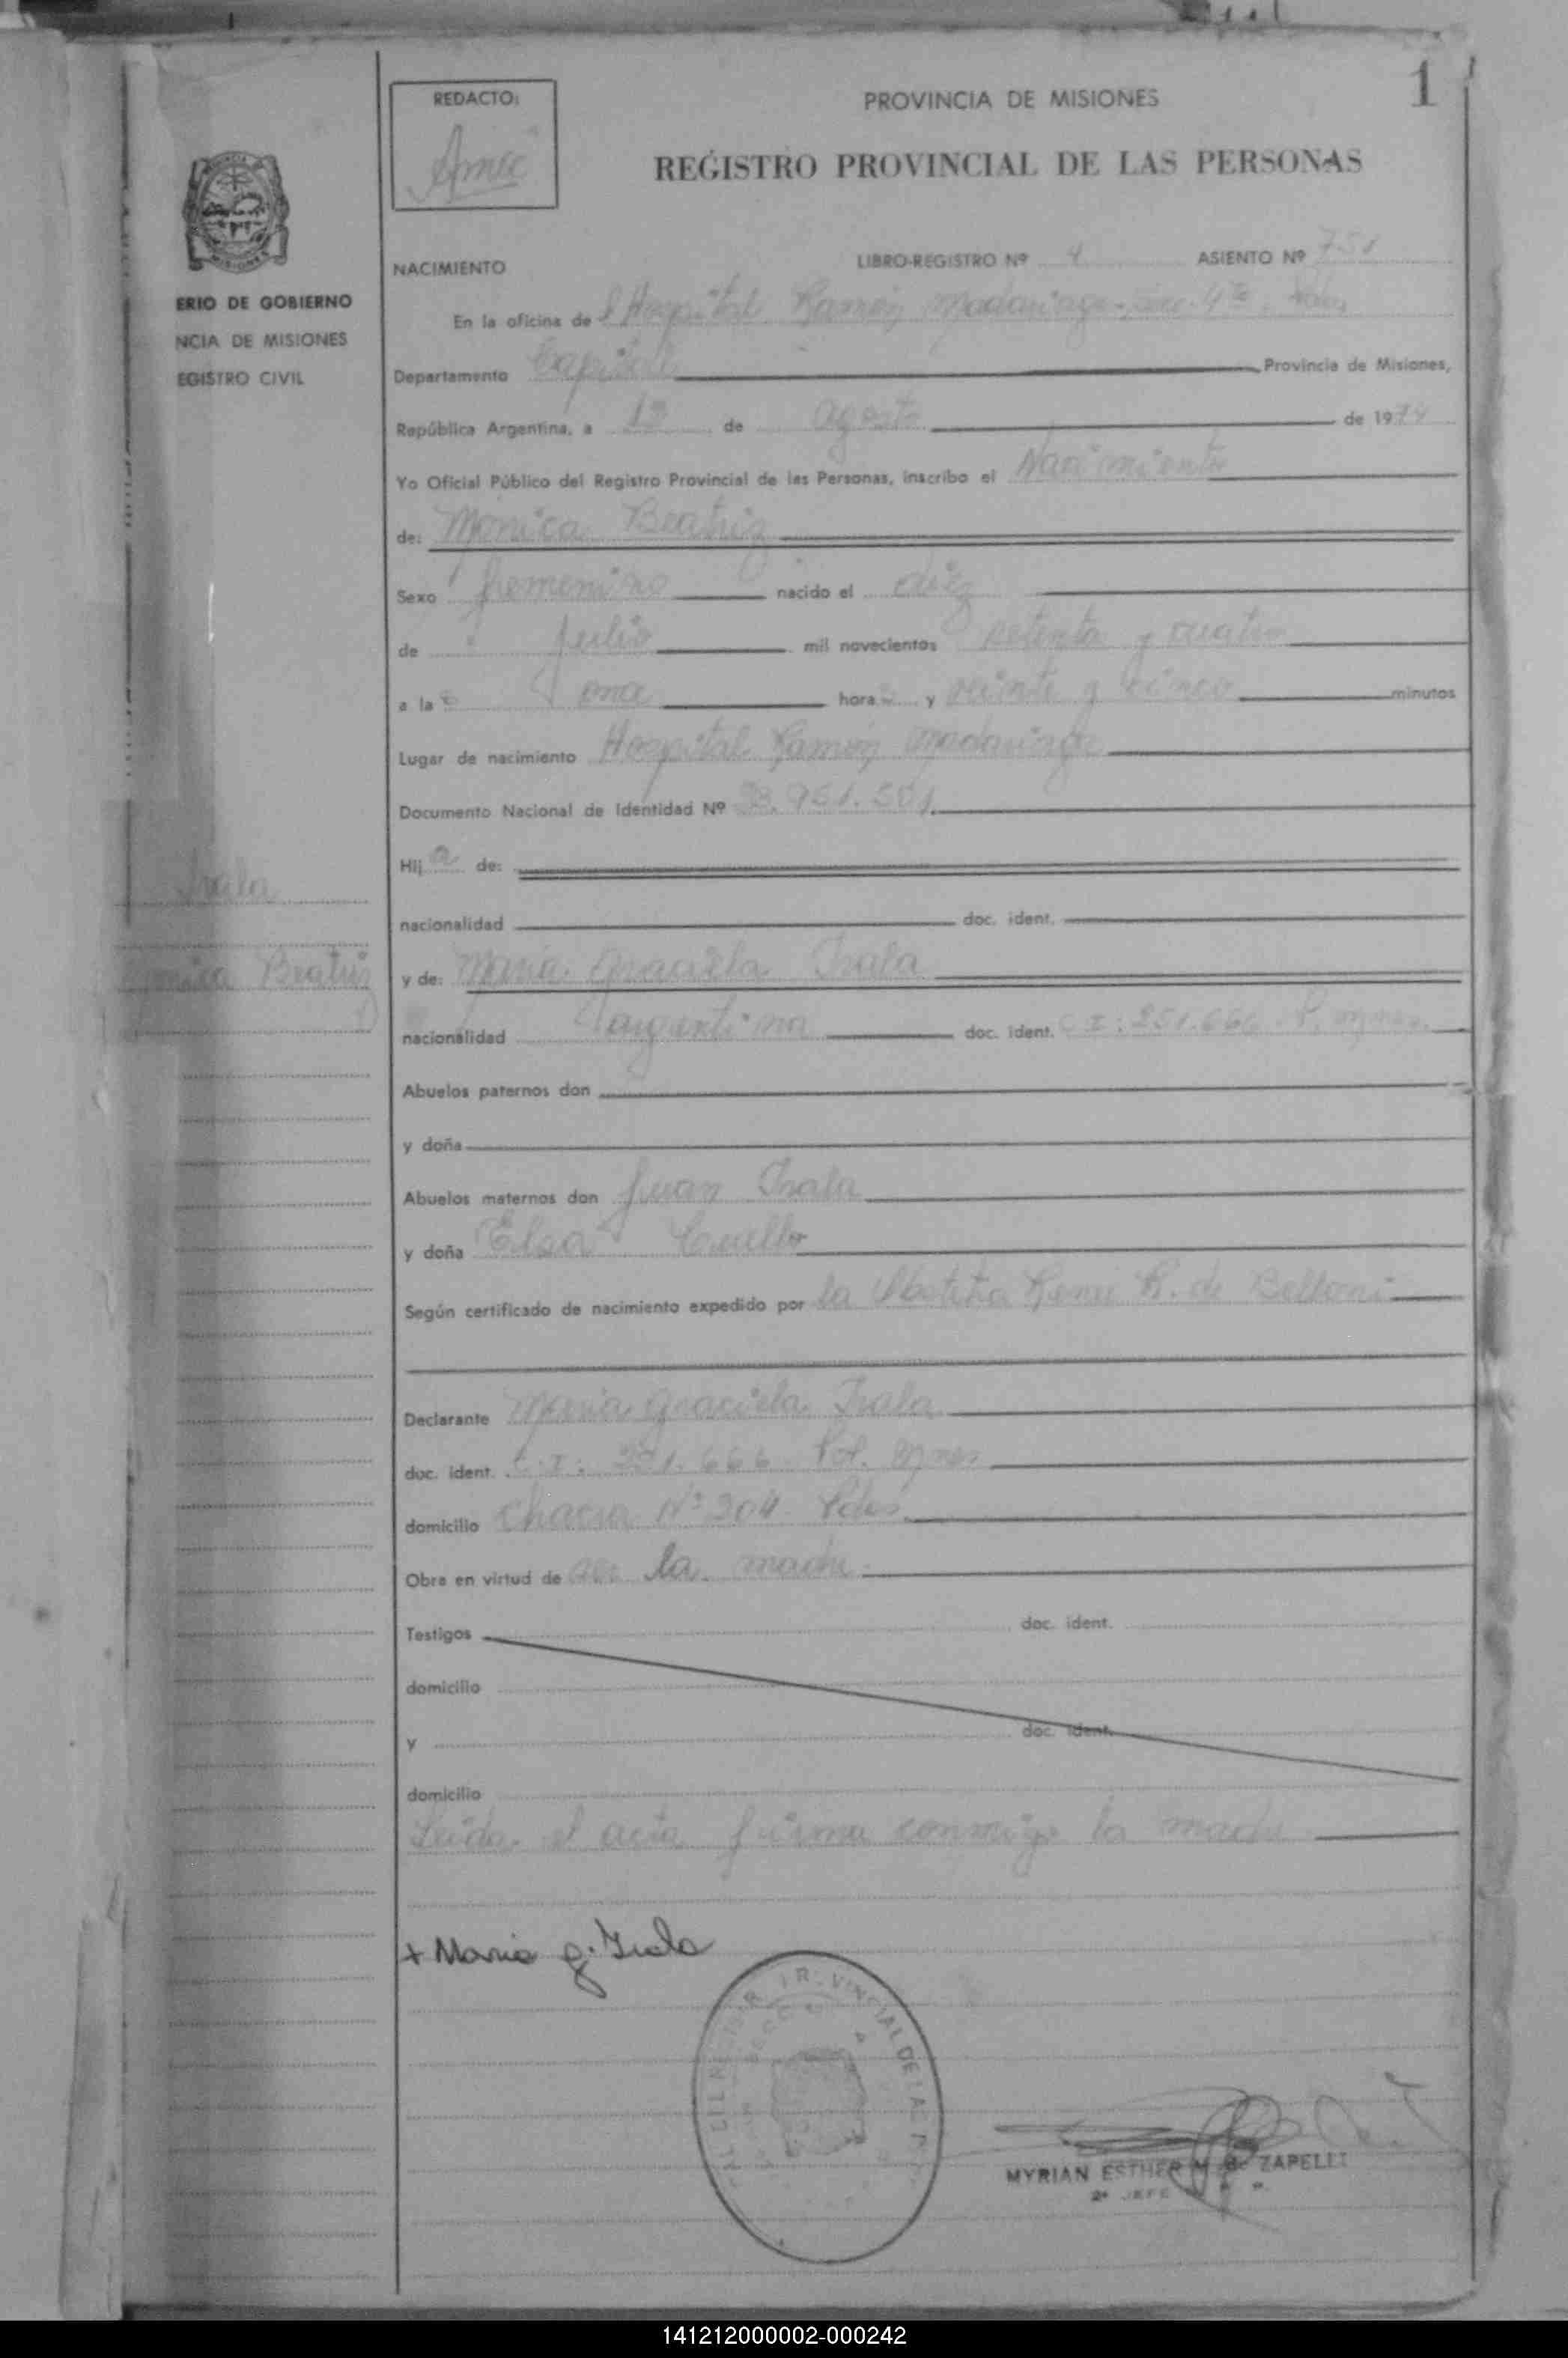 1
REDACTO:
PROVINCIA DE MISIONES
REGISTRO PROVINCIAL DE LAS PERSONAS
MISIONES
ERIO DE GOBIERNO
NCIA DE MISIONES
EGISTRO CIVIL
NACIMIENTO LIBRO-REGISTRO Nº 4 ASIENTO Nº 751
En la oficina de l Hospital Ramón Madariaga
Departamento Capital Provincia de Misiones,
República Argentina, a de agosto de 1974
Yo Oficial Público del Registro Provincial de las Personas, inscribo el Nacimiento
de: Mónica Beatriz
Sexo femenino nacido el diez
de julio mil novecientos setenta y cuatro
a la s once hora s y veinte y cinco minutos
Lugar de nacimiento Hospital Ramón Madariaga
Documento Nacional de Identidad Nº
Hij a de:
nacionalidad doc. ident.
Irala
Mónica Beatriz
y de: María Graciela Irala
nacionalidad argentina doc. ident. C.I:
Abuelos paternos don
y doña
Abuelos maternos don Juan Irala
y doña Elsa
Según certificado de nacimiento expedido por la Obstetra R. de Belloni
Declarante María Graciela Irala
doc. ident. C.I: Pol. Mnes
domicilio Chacra Nº 204 Pdas
Obra en virtud de la madre
Testigos doc. ident.
domicilio
y doc. ident.
domicilio
Leida el acta firma conmigo la madre
+ Maria G. Irala
MYRIAN ESTHER M. de ZAPELLI
2º JEFE
141212000002-000242